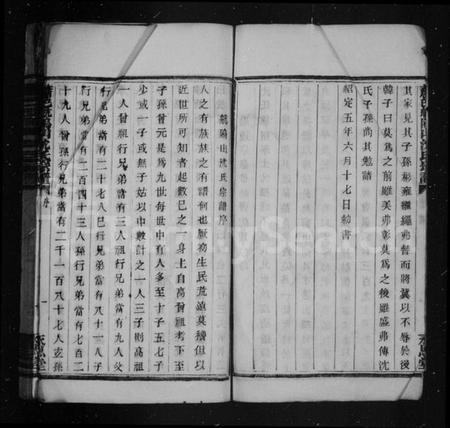 其家見其子孫彬雍繼繩弗替而將冀以不辱於後
韓子曰莫爲之前雖美弗彰莫爲之後雖盛弗傳沈
氏子孫尚其勉諸
紹定五年六月十七日勅書
龍隱山沈氏宗譜序
人之有族族之有譜何也厥初生民荒遠莫稽但以
近世所可知者起數已之一身上自高曾祖考下至
子孫曾元是爲九世每世中有人多至十子五七子
少或一子或無子姑以中數計之一人三子則高祖
一人曾祖行兄弟當有三人祖行兄弟當有九人父
行兄弟當有二十七人己行兄弟當有八十一人子
行兄弟當有二百四十三人孫行兄弟當有七百二
十九人曾孫行兄弟當有二千一百八十七人玄孫
序